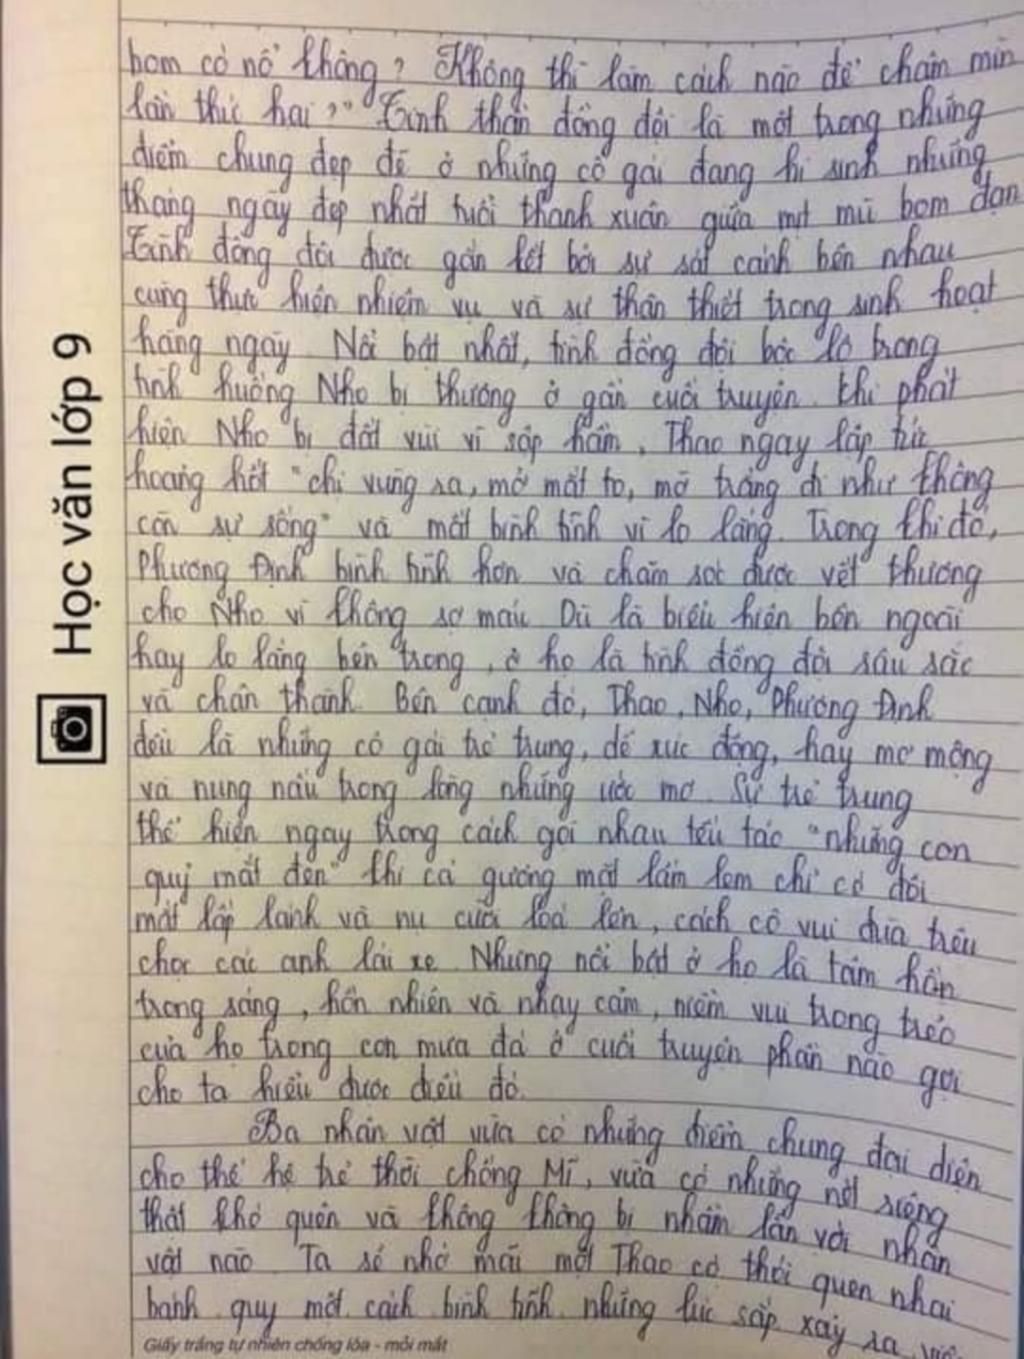 bom có nổ không? Không thì làm cách nào để châm mìn
lần thứ hai?" Tinh thần đồng đội là một trong những
điểm chung đẹp đẽ ở những cô gái đang hi sinh những
tháng ngày đẹp nhất tuổi thanh xuân giữa mịt mù bom đạn
Tình đồng đội được gắn kết bởi sự sát cánh bên nhau
cùng thực hiện nhiệm vụ và sự thân thiết trong sinh hoạt
hằng ngày. Nổi bật nhất, tình đồng đội bộc lộ trong
tình huống Nho bị thương ở gần cuối truyện. Khi phát
hiện Nho bị đất vùi vì sập hầm, Thao ngay lập tức
hoảng hốt "chị vùng ra, mở mắt to, mờ trắng đi như không
còn sự sống" và mất bình tĩnh vì lo lắng. Trong khi đó,
Phương Định bình tĩnh hơn và chăm sóc được vết thương
cho Nho vì không sợ máu. Dù là biểu hiện bên ngoài
hay lo lắng bên trong, ở họ là tình đồng đội sâu sắc
và chân thành. Bên cạnh đó, Thao, Nho, Phương Định
đều là những cô gái trẻ trung, dễ xúc động, hay mơ mộng
và nung nấu trong lòng những ước mơ. Sự trẻ trung
thể hiện ngay trong cách gọi nhau tếu táo "những con
quỷ mắt đen" khi cả gương mặt lấm lem chỉ có đôi
mắt lấp lánh và nụ cười loá lên, cách cô vui đùa trêu
chọc các anh lái xe. Nhưng nổi bật ở họ là tâm hồn
trong sáng, hồn nhiên và nhạy cảm, niềm vui trong trẻo
của họ trong cơn mưa đá ở cuối truyện phần nào gợi
cho ta hiểu được điều đó.
Ba nhân vật vừa có những điểm chung đại diện
cho thế hệ trẻ thời chống Mĩ, vừa có những nét riêng
thật khó quên và không không bị nhầm lẫn với nhân
vật nào. Ta sẽ nhớ mãi một Thao có thói quen nhai
bánh quy một cách bình tĩnh những lúc sắp xảy ra
Giấy trắng tự nhiên chống lóa - mỏi mắt
Học văn lớp 9